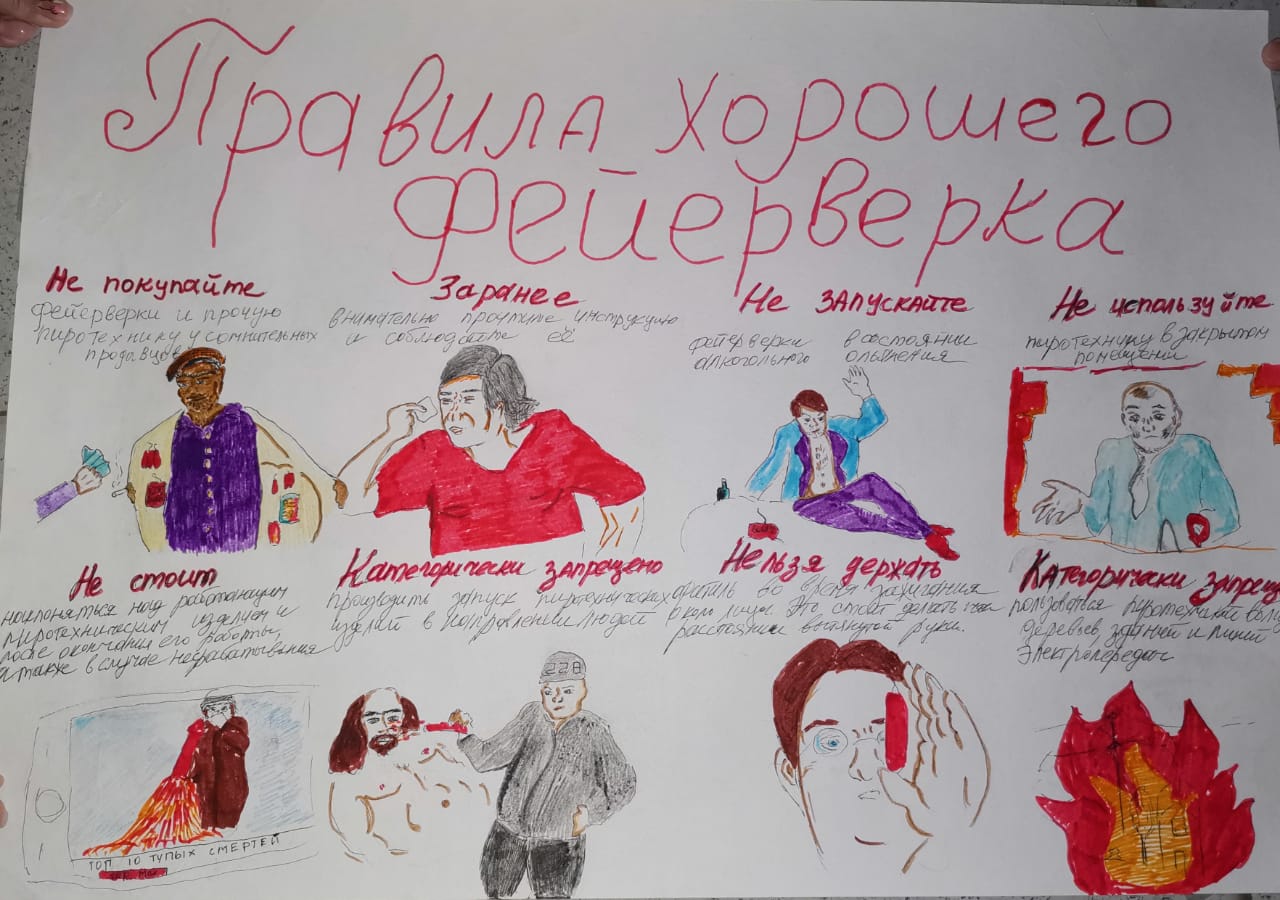 Правила хорошего
фейерверка
Не покупайте
фейерверки и прочую
пиротехнику у сомнительных
продавцов
Заранее
внимательно прочтите инструкцию
и соблюдайте её
Не запускайте
фейерверки в состоянии
алкогольного опьянения
Не используйте
пиротехнику в закрытом
помещении
Не стоит
наклоняться над работающим
пиротехническим изделием и
после окончания его работы,
а также в случае несрабатывания
ТОП 10 ТУПЫХ СМЕРТЕЙ
Категорически запрещено
производить запуск пиротехнических
изделий в направлении людей
228
Нельзя держать
фитиль во время зажигания
около лица. Это стоит делать на
расстоянии вытянутой руки.
Категорически запрещ
пользоваться пиротехникой
деревьев, зданий и линий
электропередач